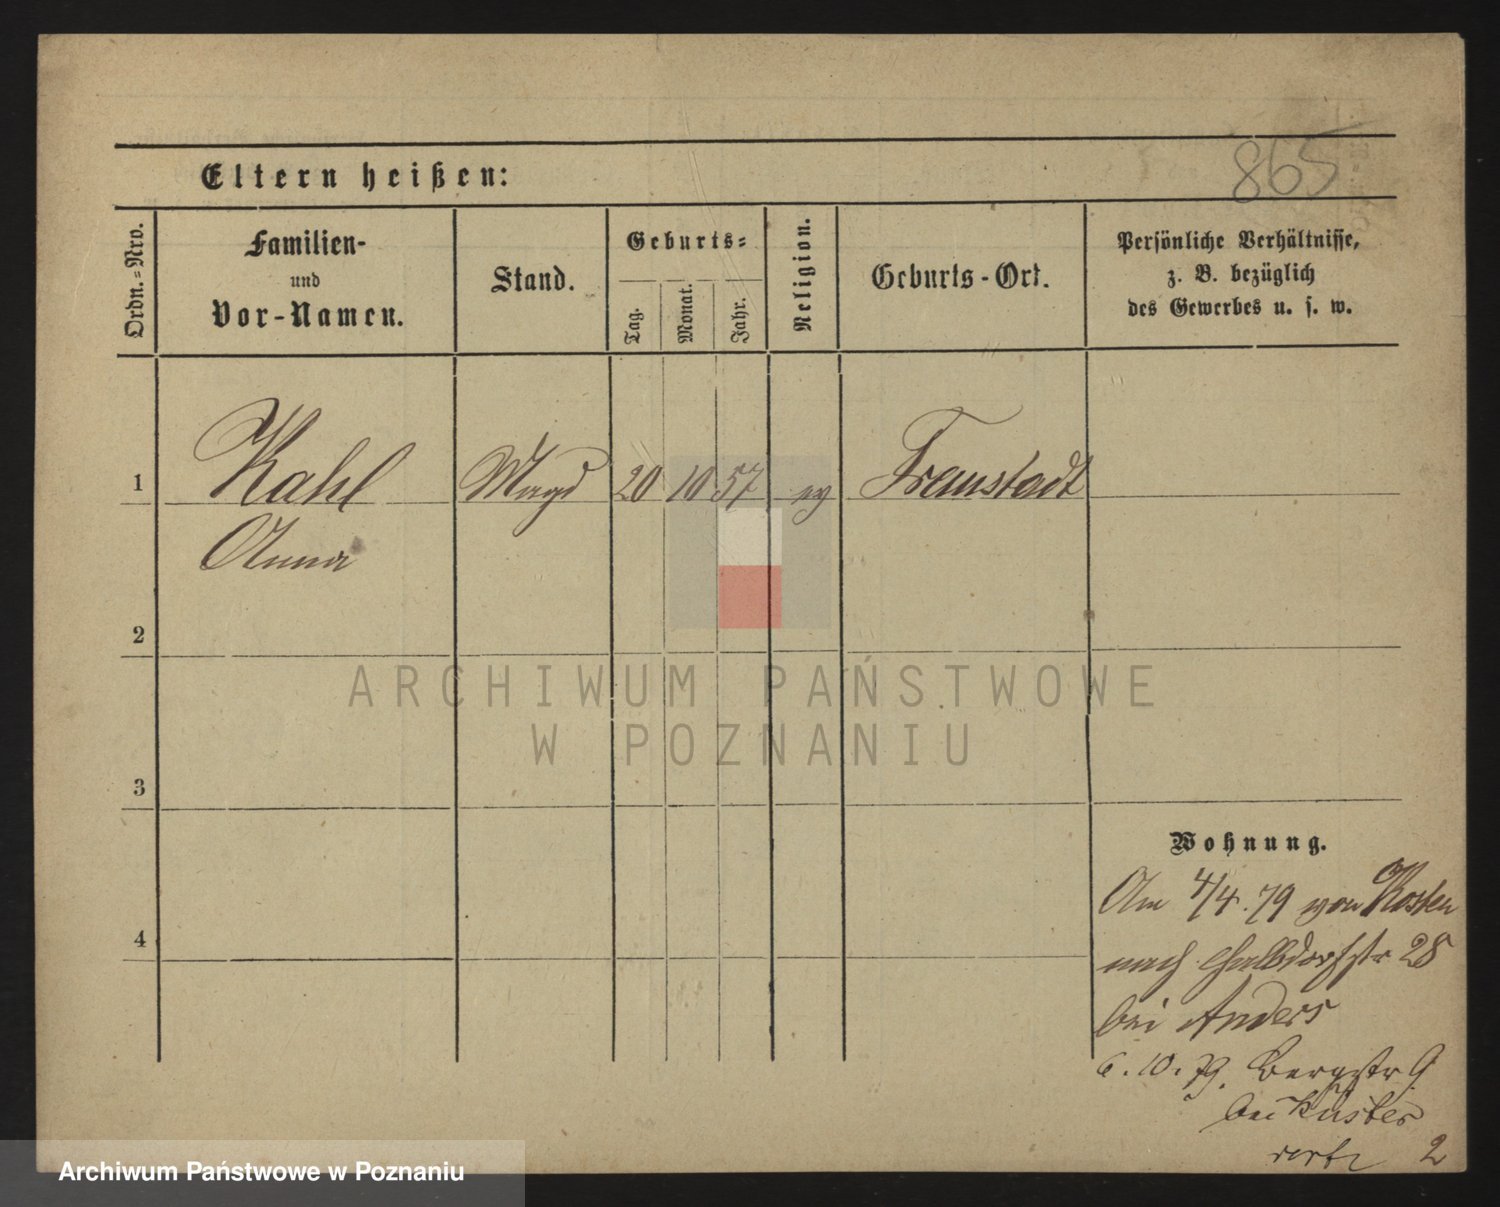 865
Eltern heißen:
Ordn.-Nro.
Familien-
und
Vor-Namen.
Stand.
Geburts-
Tag.
Monat.
Jahr.
Religion.
Geburts-Ort.
Persönliche Verhältnisse,
z. B. bezüglich
des Gewerbes u. s. w.
1 Kahl Magd 20 10 57 ev Fraustadt
Anna
2
3
4
ARCHIWUM PAŃSTWOWE
W POZNANIU
Wohnung.
Am 4/4. 79 von Kosten
nach Halbdorfstr 28
bei Anders
6. 10. 79. Bergstr 9
bei Küster
2
Archiwum Państwowe w Poznaniu